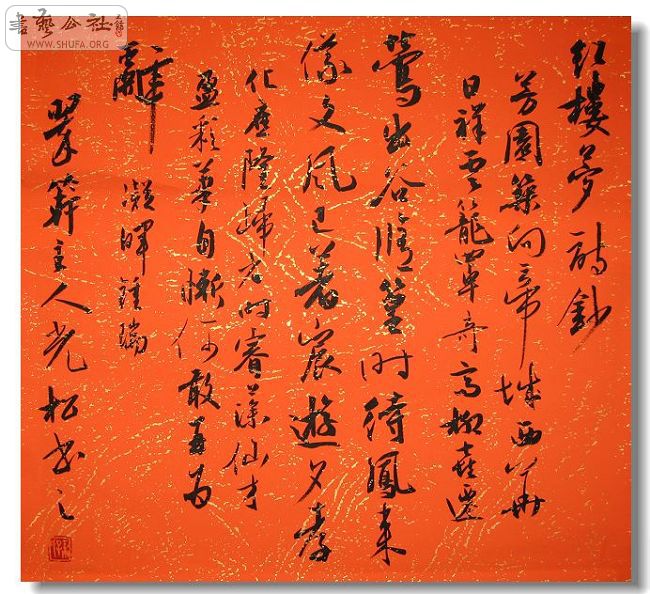 書藝公社
WWW.SHUFA.ORG
红樓夢詩鈔
芳園築向帝城西華
日祥雲籠罩奇高柳喜遷
鶯出谷脩篁时待鳳来
儀文風已著宸遊夕孝
化應隆歸省时睿藻仙才
盈彩筆自慚何敢再为
辭 凝暉鍾瑞
翠主人光松书之